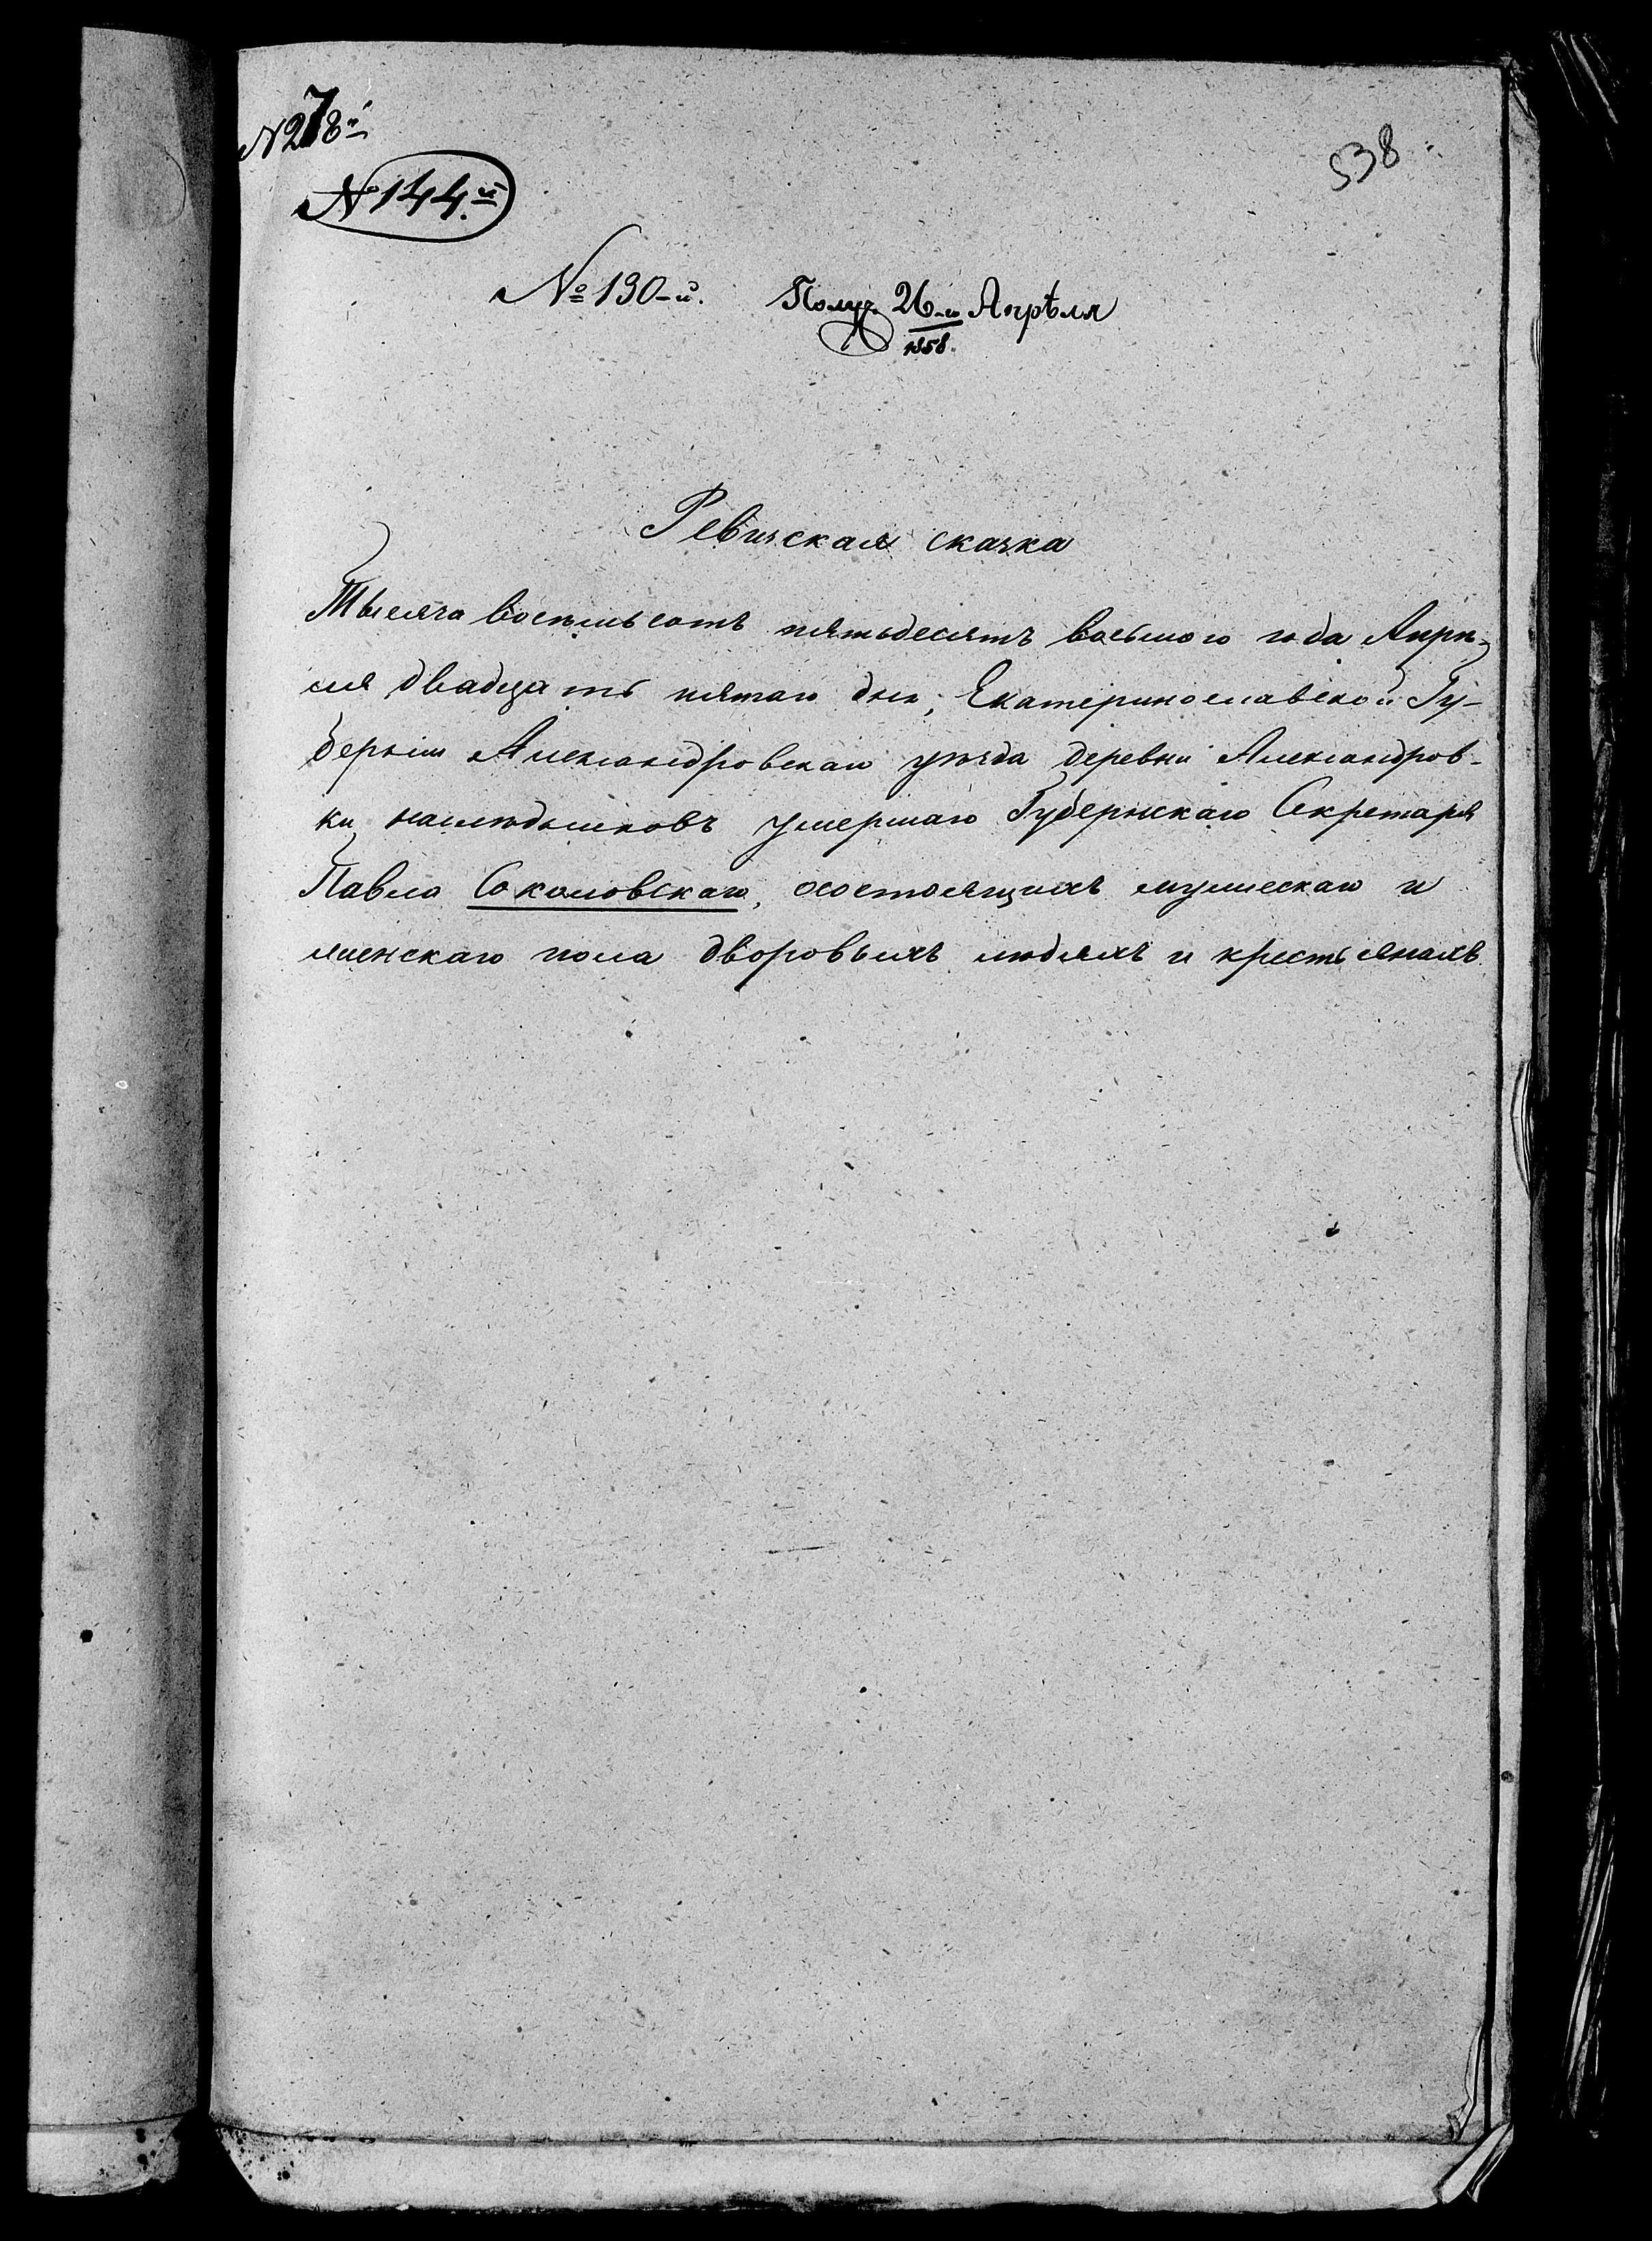 №278й
538
№144.й
№190-й. Получ. 26-го Апрѣля
1858.
Ревизская сказка
Тысяча восемьсотъ пятьдесятъ восьмого года Апрѣ-
ля двадцать пятаго дня, Екатеринославской Гу-
берніи Александровскаго уѣзда деревни Александров-
ки наслѣдниковъ умершаго Губернскаго Секретаря
Павла Соколовскаго, состоящихъ мужескаго и
женскаго пола дворовыхъ людяхъ и крестьянахъ